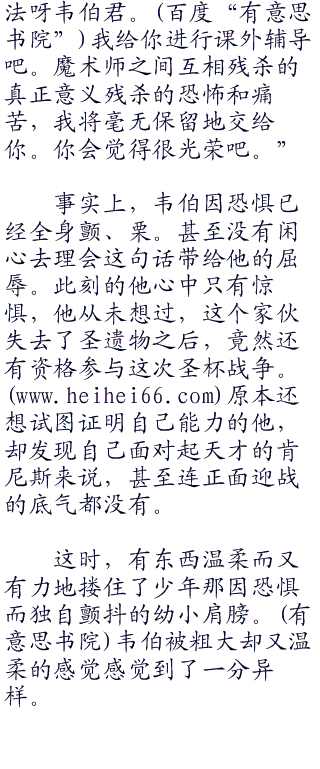 法呀韦伯君。(百度“有意思
书院”)我给你进行课外辅导
吧。魔术师之间互相残杀的
真正意义残杀的恐怖和痛
苦，我将毫无保留地交给
你。你会觉得很光荣吧。”
事实上，韦伯因恐惧已
经全身颤、栗。甚至没有闲
心去理会这句话带给他的屈
辱。此刻的他心中只有惊
惧，他从未想过，这个家伙
失去了圣遗物之后，竟然还
有资格参与这次圣杯战争。
(www.heihei66.com)原本还
想试图证明自己能力的他，
却发现自己面对起天才的肯
尼斯来说，甚至连正面迎战
的底气都没有。
这时，有东西温柔而又
有力地搂住了少年那因恐惧
而独自颤抖的幼小肩膀。(有
意思书院)韦伯被粗大却又温
柔的感觉感觉到了一分异
样。